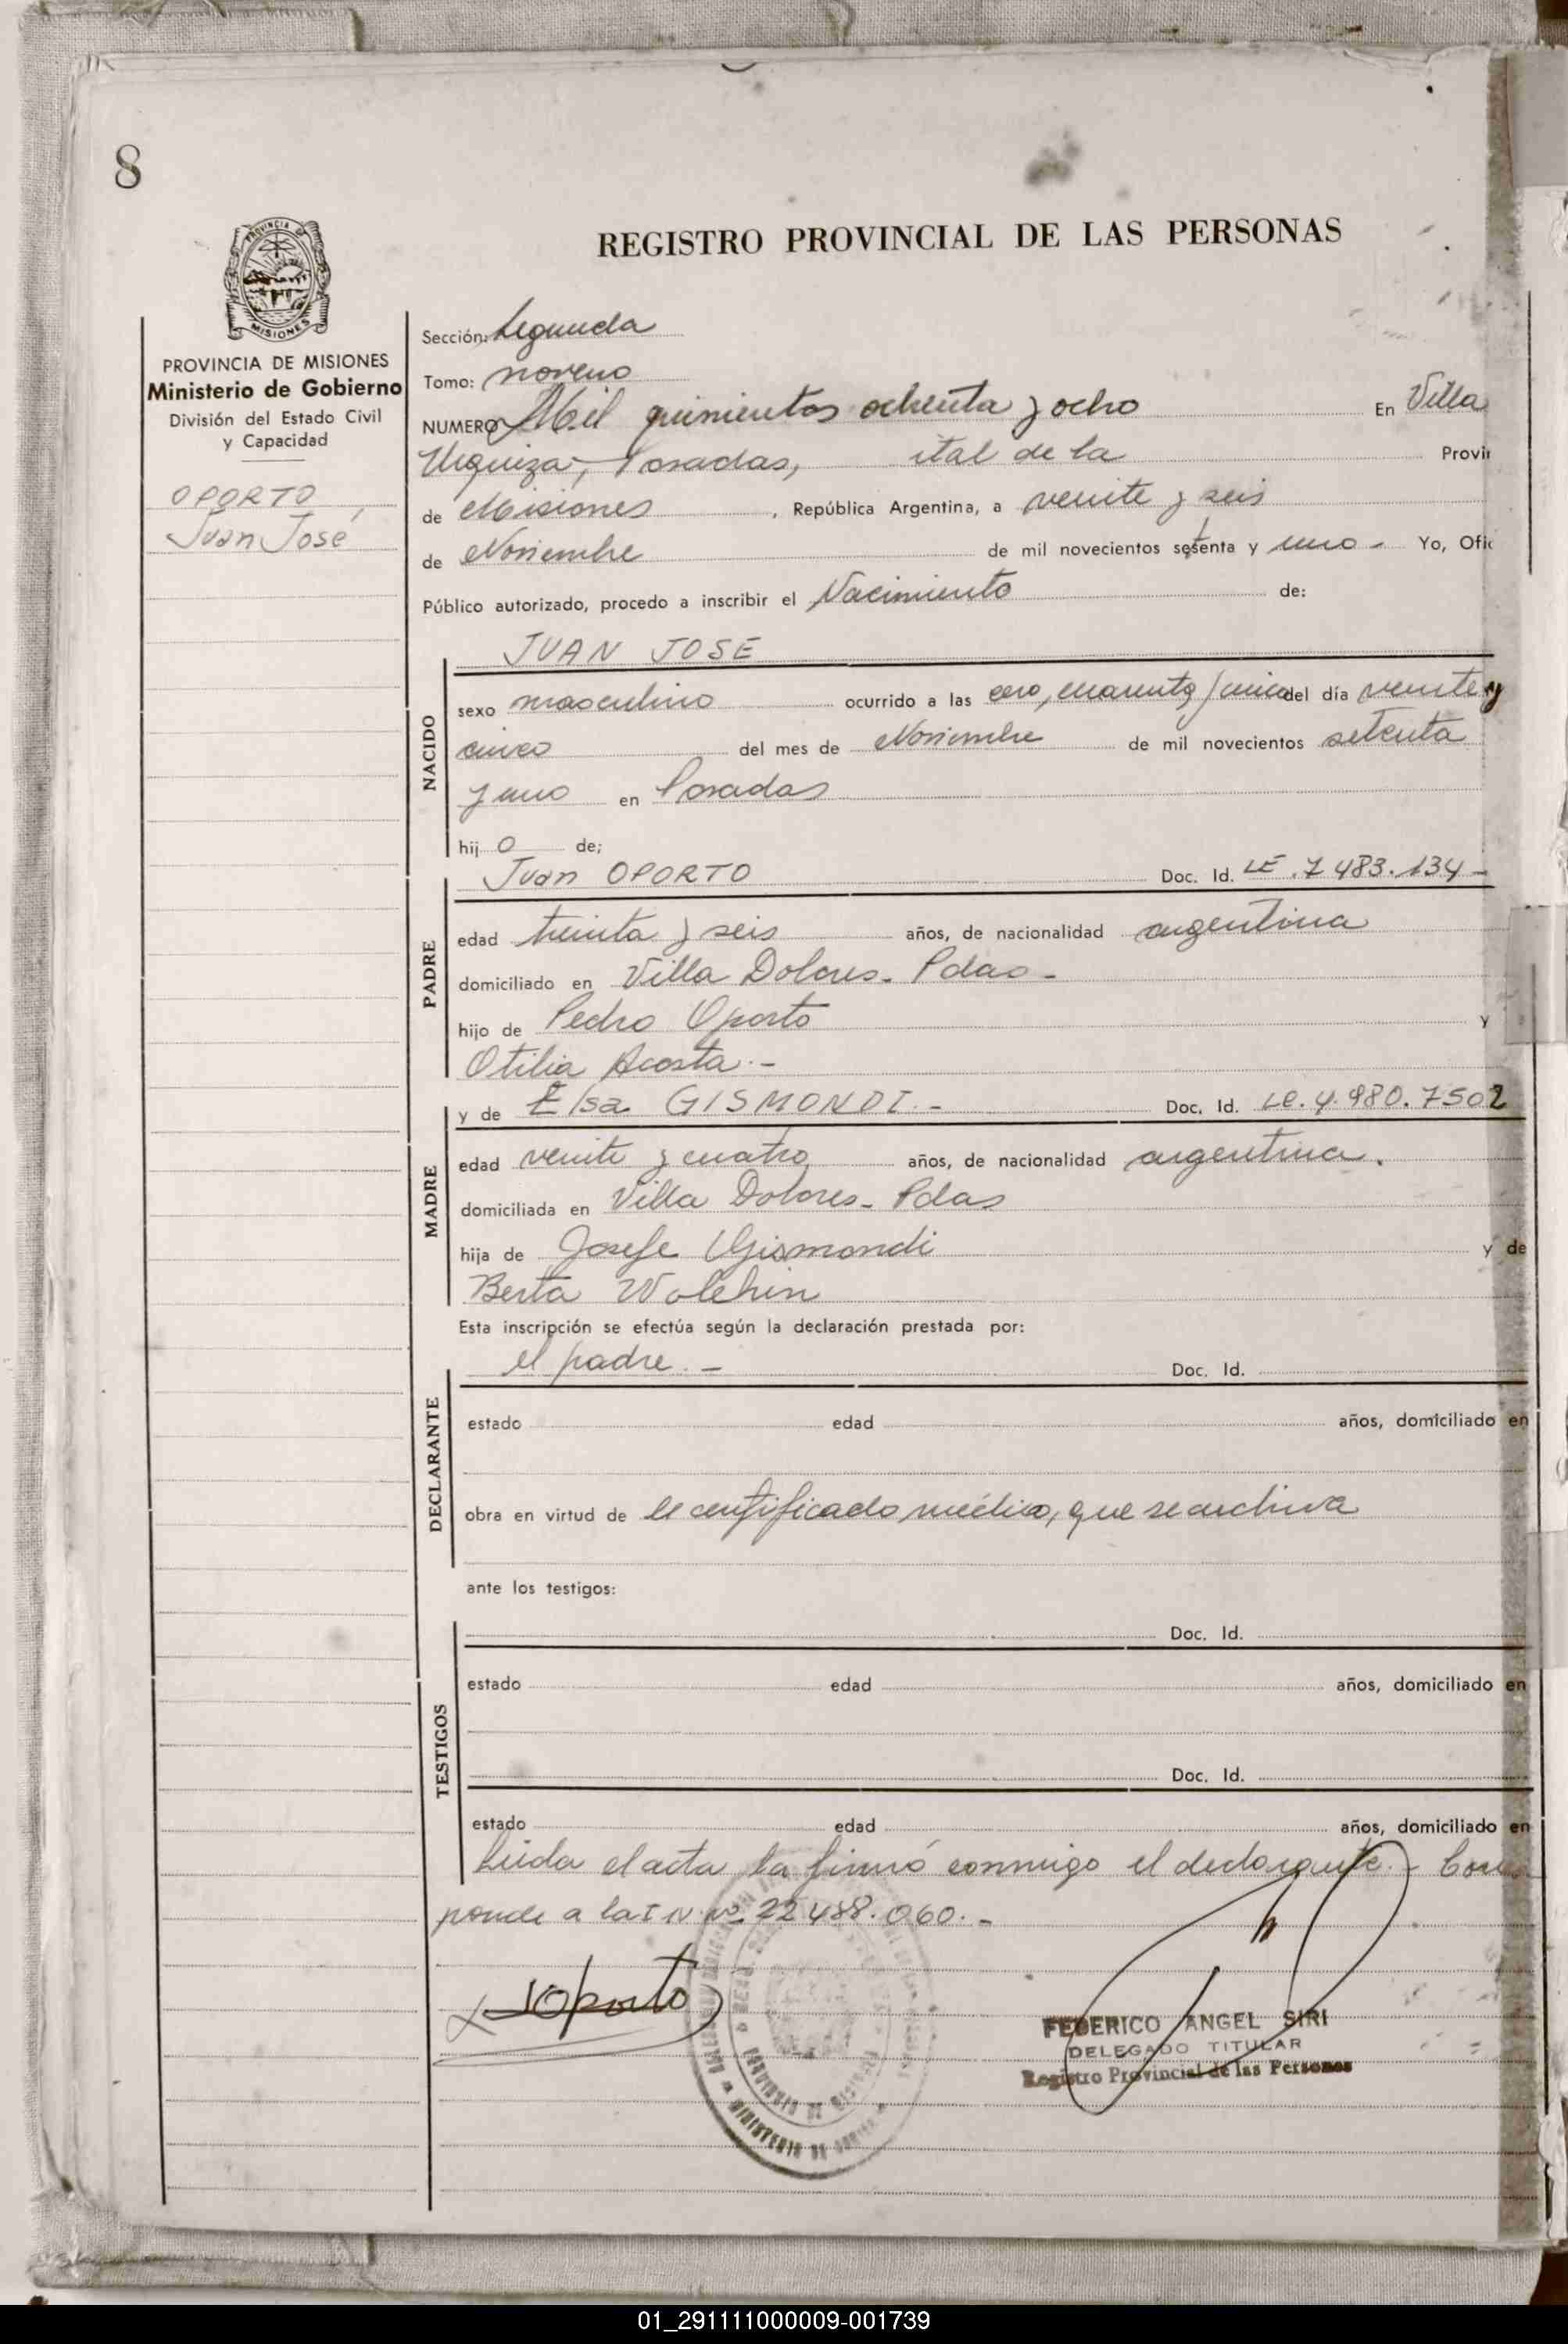 8
PROVINCIA DE
MISIONES
PROVINCIA DE MISIONES
Ministerio de Gobierno
División del Estado Civil
y Capacidad
OPORTO,
Juan José
REGISTRO PROVINCIAL DE LAS PERSONAS
Sección: Segunda
Tomo: noveno
NUMERO Mil quinientos ochenta y ocho En Villa
Urquiza, Posadas, ital de la Provin
de Misiones, República Argentina, a veinte y seis
de Noviembre de mil novecientos setenta y uno - Yo, Ofic
Público autorizado, procedo a inscribir el Nacimiento de:
JUAN JOSE
NACIDO
sexo masculino ocurrido a las cero, cuarenta y cinco del día veinte y
cinco del mes de Noviembre de mil novecientos setenta
y uno en Posadas
hij o de;
Juan OPORTO Doc. Id. LE. 7 483.134 -
PADRE
edad treinta y seis años, de nacionalidad argentina
domiciliado en Villa Dolores - Pdas -
hijo de Pedro Oporto y
Otilia Acosta. -
y de Elsa GISMONDI. - Doc. Id. LC. 4.980.7502
MADRE
edad veinte y cuatro años, de nacionalidad argentina.
domiciliada en Villa Dolores - Pdas
hija de Josefe Gismondi y de
Berta Wolchin
Esta inscripción se efectúa según la declaración prestada por:
el padre. - Doc. Id.
DECLARANTE
estado edad años, domiciliado en
obra en virtud de el certificado médico, que se archiva
ante los testigos:
Doc. Id.
TESTIGOS
estado edad años, domiciliado en
Doc. Id.
estado edad años, domiciliado en
Leida el acta la firmó conmigo el declarante. - Corres
ponde a la I N. nº 22 488.060. -
JOporto
FEDERICO ANGEL SIRI
DELEGADO TITULAR
Registro Provincial de las Personas
PROVINCIA DE MISIONES
MINISTERIO DE
01_291111000009-001739